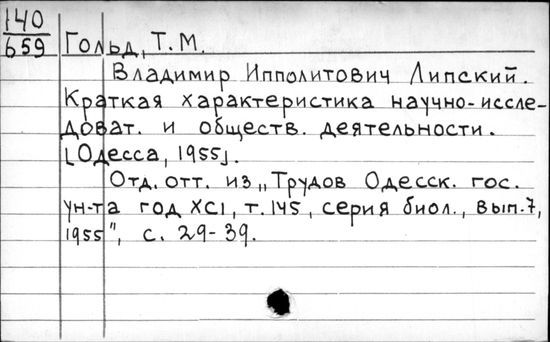 140
659 Гольд, Т. М.
Владимир Ипполитович Липский.
Краткая характеристика научно-иссле-
доват. и обществ. деятельности.
[Одесса, 1955].
Отд. отт. из „Трудов Одесск. гос.
ун-та год XCI, т. 145, серия биол., вып. 7,
1955", с. 29-39.